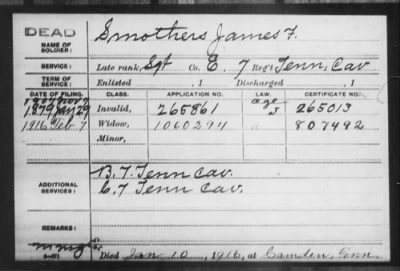 DEAD
NAME OF SOLDIER:
Smothers James F.
SERVICE:
Late rank, Sgt Co. E. 7 Reg't Tenn. Cav
TERM OF SERVICE:
Enlisted , 1 Discharged , 1
DATE OF FILING. CLASS. APPLICATION NO. LAW. CERTIFICATE NO.
1879 Jan 29 Invalid, 265861 age 265013
1916 Feb 7 Widow, 1060294 807492
Minor,
ADDITIONAL SERVICES:
B. 7. Tenn Cav.
C. 7 Tenn Cav.
REMARKS:
Died Jan 10, 1916, at Camden, Tenn.